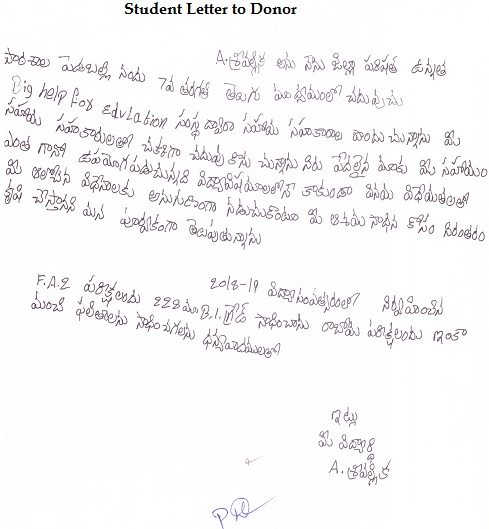 Student Letter to Donor
A. శ్రీవల్లిక అను నేను జిల్లా పరిషత్ ఉన్నత
పాఠశాల పెదబల్లి నందు 7వ తరగతి తెలుగు మాధ్యమంలో చదువుచు
Big help for Edulation సంస్థ ద్వారా సహాయ సహకారాలు పొందుచున్నాను మీ
సహాయ సహకారులతో చక్కగా చదువు కొను చున్నాను నిరు పేదలైన మాకు మీ సహాయం
ఎంత గానో ఉపయోగపడుచున్నది విద్యావిషయాలలోనే కాకుండా వినయ విధేయతలతో
మీ ఆలోచన విధేనాలకు అనుగుణంగా నడుచుకొంటూ మీ ఆశయ సాధన కోసం నిరంతరం
కృషి చేస్తానని మన పూర్వకంగా తెలుపుతున్నాను
2018-19 విద్యాసంవత్సరంలో నిర్వహించిన
F.A.2 పరిక్షలందు 228 మా B.1. గ్రేడ్ సాధించాను రాబోయే పరిక్షలందు ఇంకా
మంచి ఫలితాలను సాధించగలను ధన్యవాదములతో
ఇట్లు
మీ విద్యార్థి
A. శ్రీవల్లిక